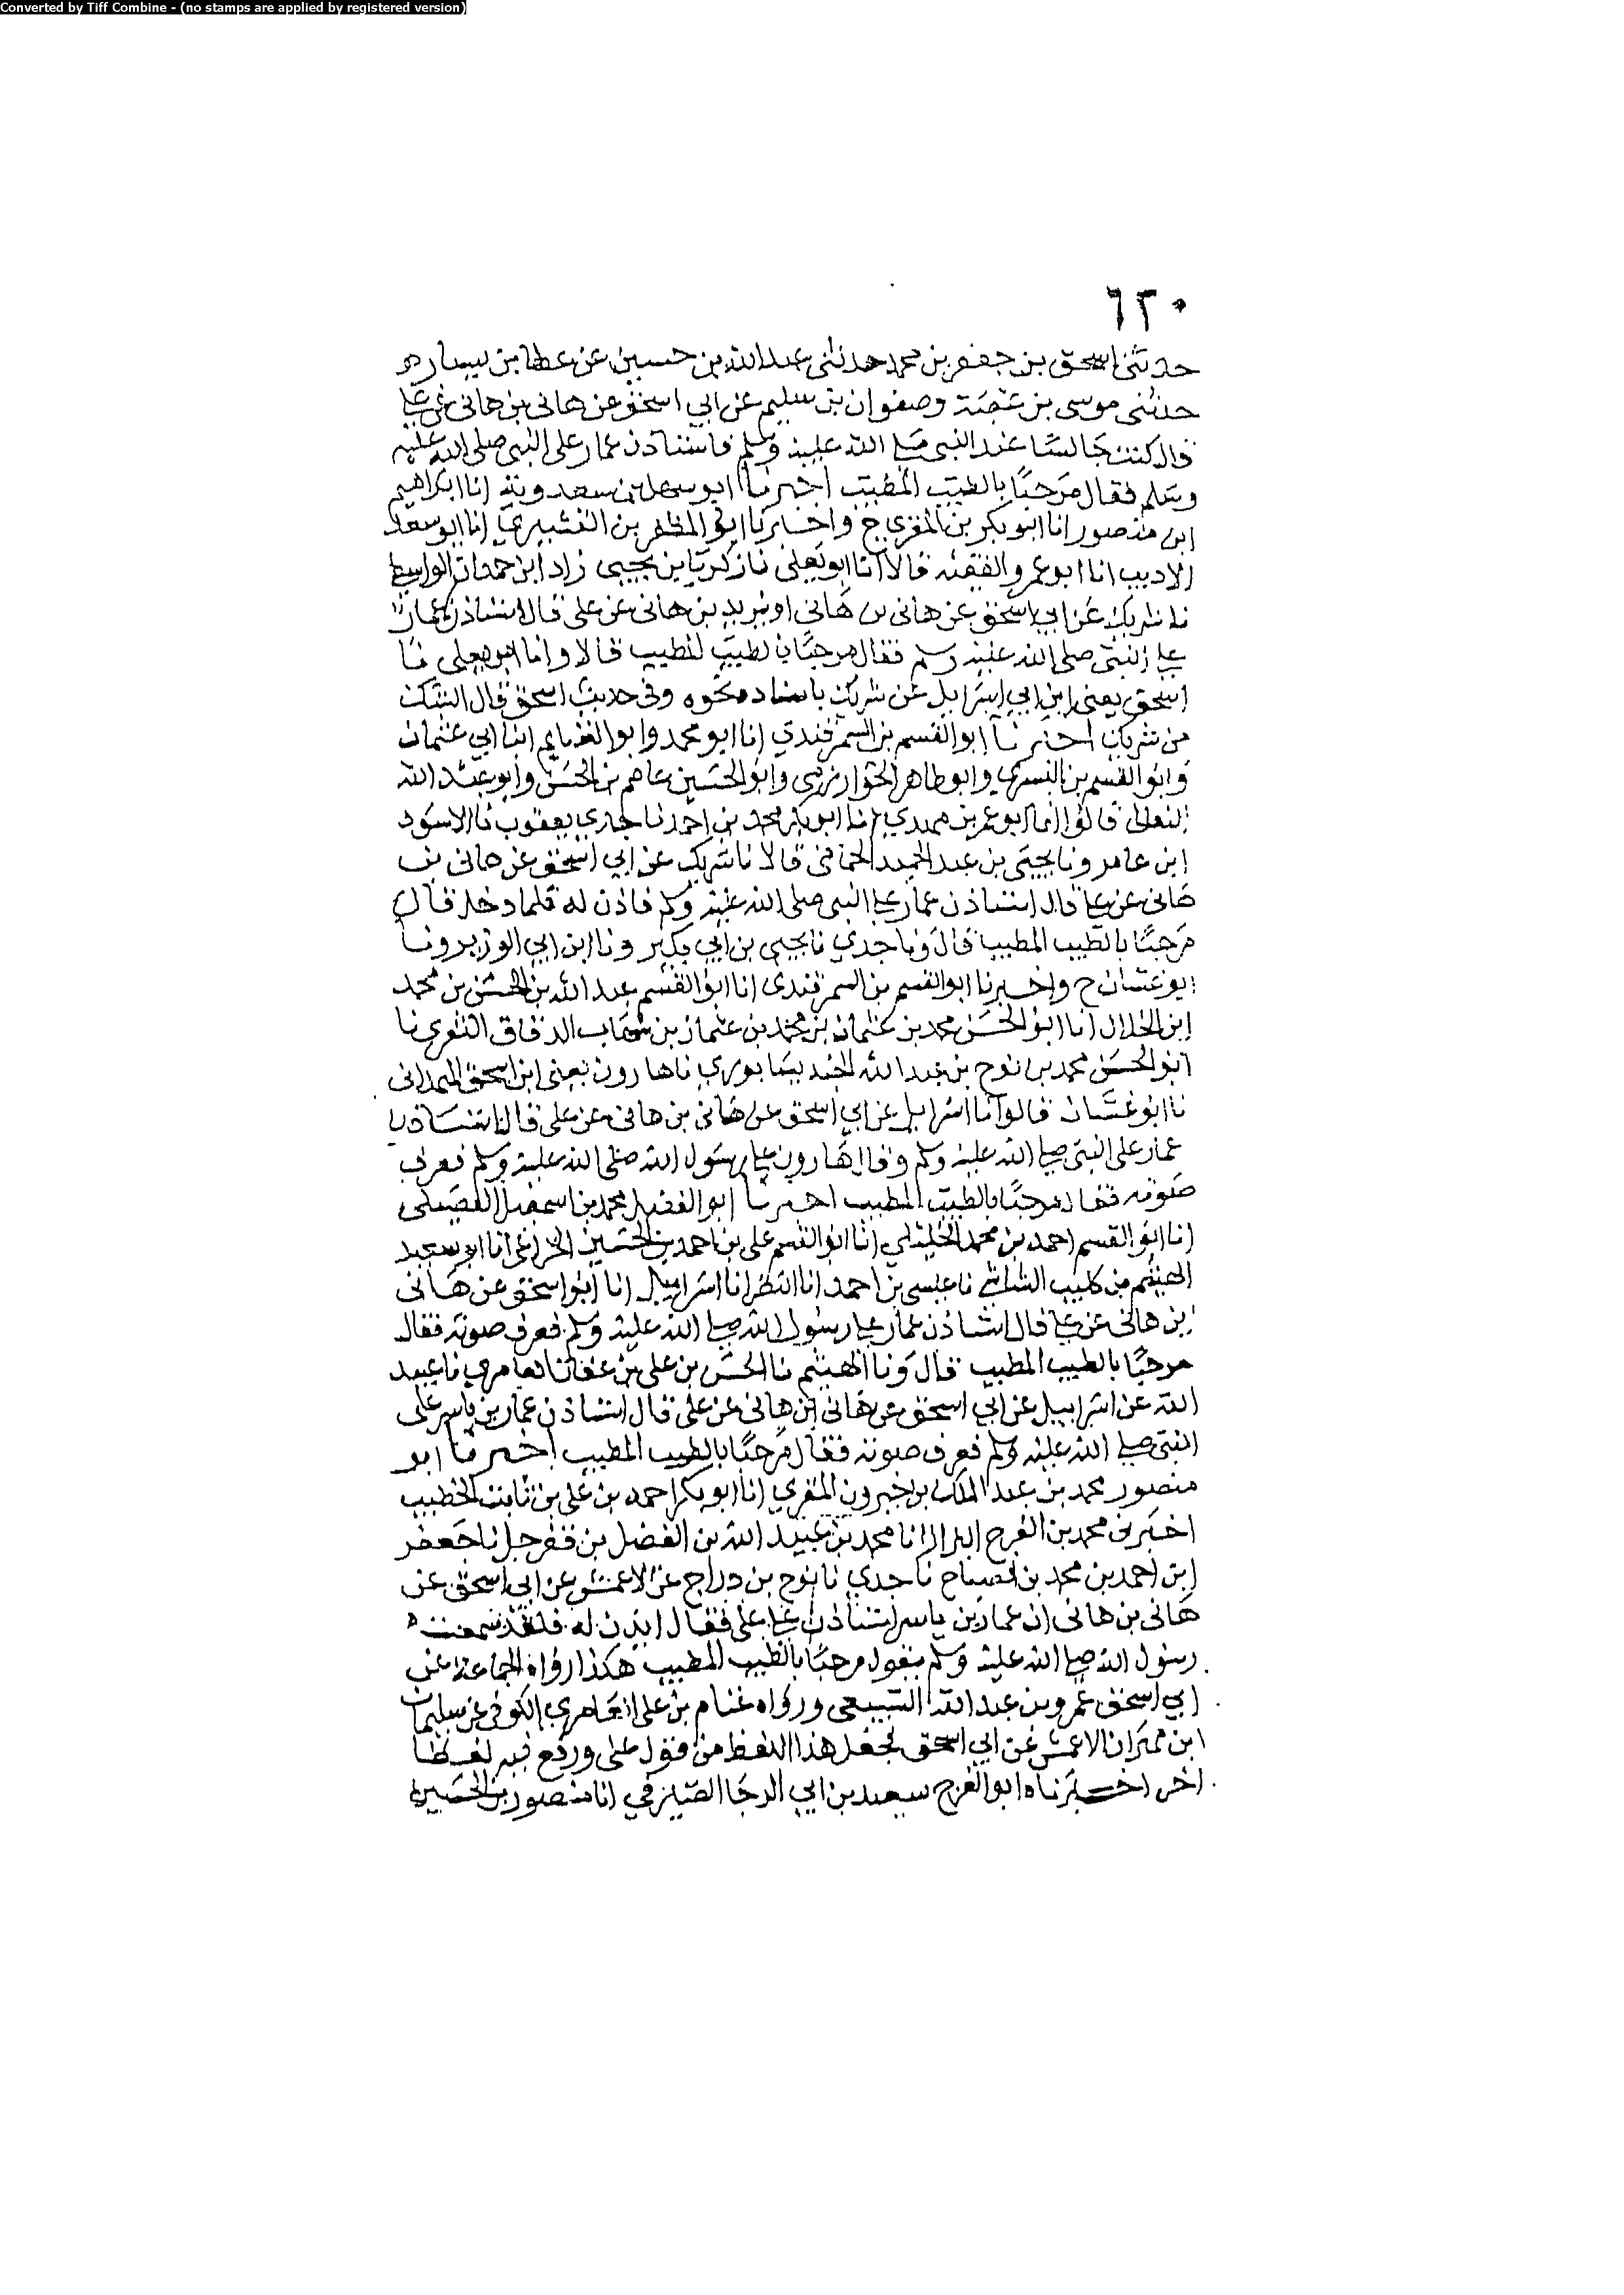 Converted by Tiff Combine - (no stamps are applied by registered version)
٦٣٠
حدثني اسحق بن جعفر بن محمد حدثني عبد الله بن حسين عن عطا بن يسار ه
حدثني موسى بن عقبة وصفوان بن سليم عن ابي اسحق عن هانى بن هانى عن علي
قال كنت جالسًا عند النبي صلى الله عليه وسلم فاستاذن عمار على النبي صلى الله عليه
وسلم فقال مرحبًا بالطيب المطيب اخبرنا ابو سهل بن سعدويه انا ابراهيم
ابن منصور انا ابو بكر بن المقري ح واخبرنا ابو المظفر بن القشيري انا ابو سعد
الاديب انا ابو عمرو الفقيه قالا انا ابو يعلى نا زكريا بن يحيى زاد ابن حمدان الواسطي
نا شريك عن ابي اسحق عن هانى بن هانى او يزيد بن هانى عن على قال استاذن عمار
على النبي صلى الله عليه وسلم فقال مرحبًا بالطيب المطيب قالا وانا ابو يعلى نا
اسحق يعنى ابن ابي اسرايل عن شريك باسناده نحوه وفي حديث اسحق قال الشك
من شريك اخبرنا ابو القسم بن السمرقندي انا ابو محمد وابو الغنايم ابنا ابي عثمان
وابو القسم بن البسري وابو طاهر الخوارزمي وابو الحسين عاصم بن الحسن وابو عبد الله
النعالى قالوا انا ابو عمر بن مهدي انا ابو بكر محمد بن احمد نا جدي يعقوب نا الاسود
ابن عامر ونا يحيى بن عبد الحميد الحماني قالا نا شريك عن ابي اسحق عن هانى بن
هانى عن علي قال استاذن عمار على النبي صلى الله عليه وسلم فاذن له فلما دخل قال
مرحبًا بالطيب المطيب قال ونا جدي نا يحيى بن ابي بكير ونا ابن ابي الوزير ونا
ابو غسان ح واخبرنا ابو القسم بن السمرقندى انا ابو القسم عبد الله بن الحسن بن محمد
ابن الخلال انا ابو الحسن محمد بن عثمان بن محمد بن عثمان بن شهاب الدقاق النفري نا
ابو الحسن محمد بن نوح بن عبد الله الجنديسابوري نا هارون يعنى ابن اسحق الهمدانى
نا ابو غسان قالوا نا اسرايل عن ابي اسحق عن هانى بن هانى عن على قال استاذن
عمار على النبي صلى الله عليه وسلم وقال هارون على رسول الله صلى الله عليه وسلم فعرف
صوته فقال مرحبًا بالطيب المطيب اخبرنا ابو الفضل محمد بن اسمعيل الفضيلى
انا ابو القسم احمد بن محمد الخليلي انا ابو القسم على بن احمد بن الحسين الخزاعى انا ابو سعيد
الهيثم بن كليب الشاشي نا عيسى بن احمد انا النضر انا اسرايل انا ابو اسحق عن هانى
بن هانى عن علي قال استاذن عمار على رسول الله صلى الله عليه وسلم فعرف صوته فقال
مرحبًا بالطيب المطيب قال ونا الهيثم نا الحسن بن على بن عفان العامري نا عبيد
الله عن اسراييل عن ابي اسحق عن هانى ابن هانى عن على قال استاذن عمار بن ياسر على
النبي صلى الله عليه وسلم فعرف صوته فقال مرحبًا بالطيب المطيب اخبرنا ابو
منصور محمد بن عبد الملك بن خيرون المقري انا ابو بكر احمد بن على بن ثابت الخطيب
اخبرني محمد بن الفرج البزاز انا محمد بن عبيد الله بن الفضل بن قفرجل نا جعفر
ابن احمد بن محمد بن الصباح نا جدي نا نوح بن دراج عن الاعمش عن ابي اسحق عن
هانى بن هانى ان عمار بن ياسر استاذن على على فقال ايذن له فلقد سمعت
رسول الله صلى الله عليه وسلم يقول مرحبًا بالطيب المطيب هكذا رواه الجماعة عن
ابي اسحق عمرو بن عبد الله السبيعى ورواه غنام بن على العامري الكوفى عن سليمان
ابن مهران الاعمش عن ابي اسحق فجعل هذا اللفظ من قول على ورفع فيه لفظا
اخر اخبرناه ابو الفرج سعيد بن ابي الرجا الصيرفي انا منصور بن الحسين